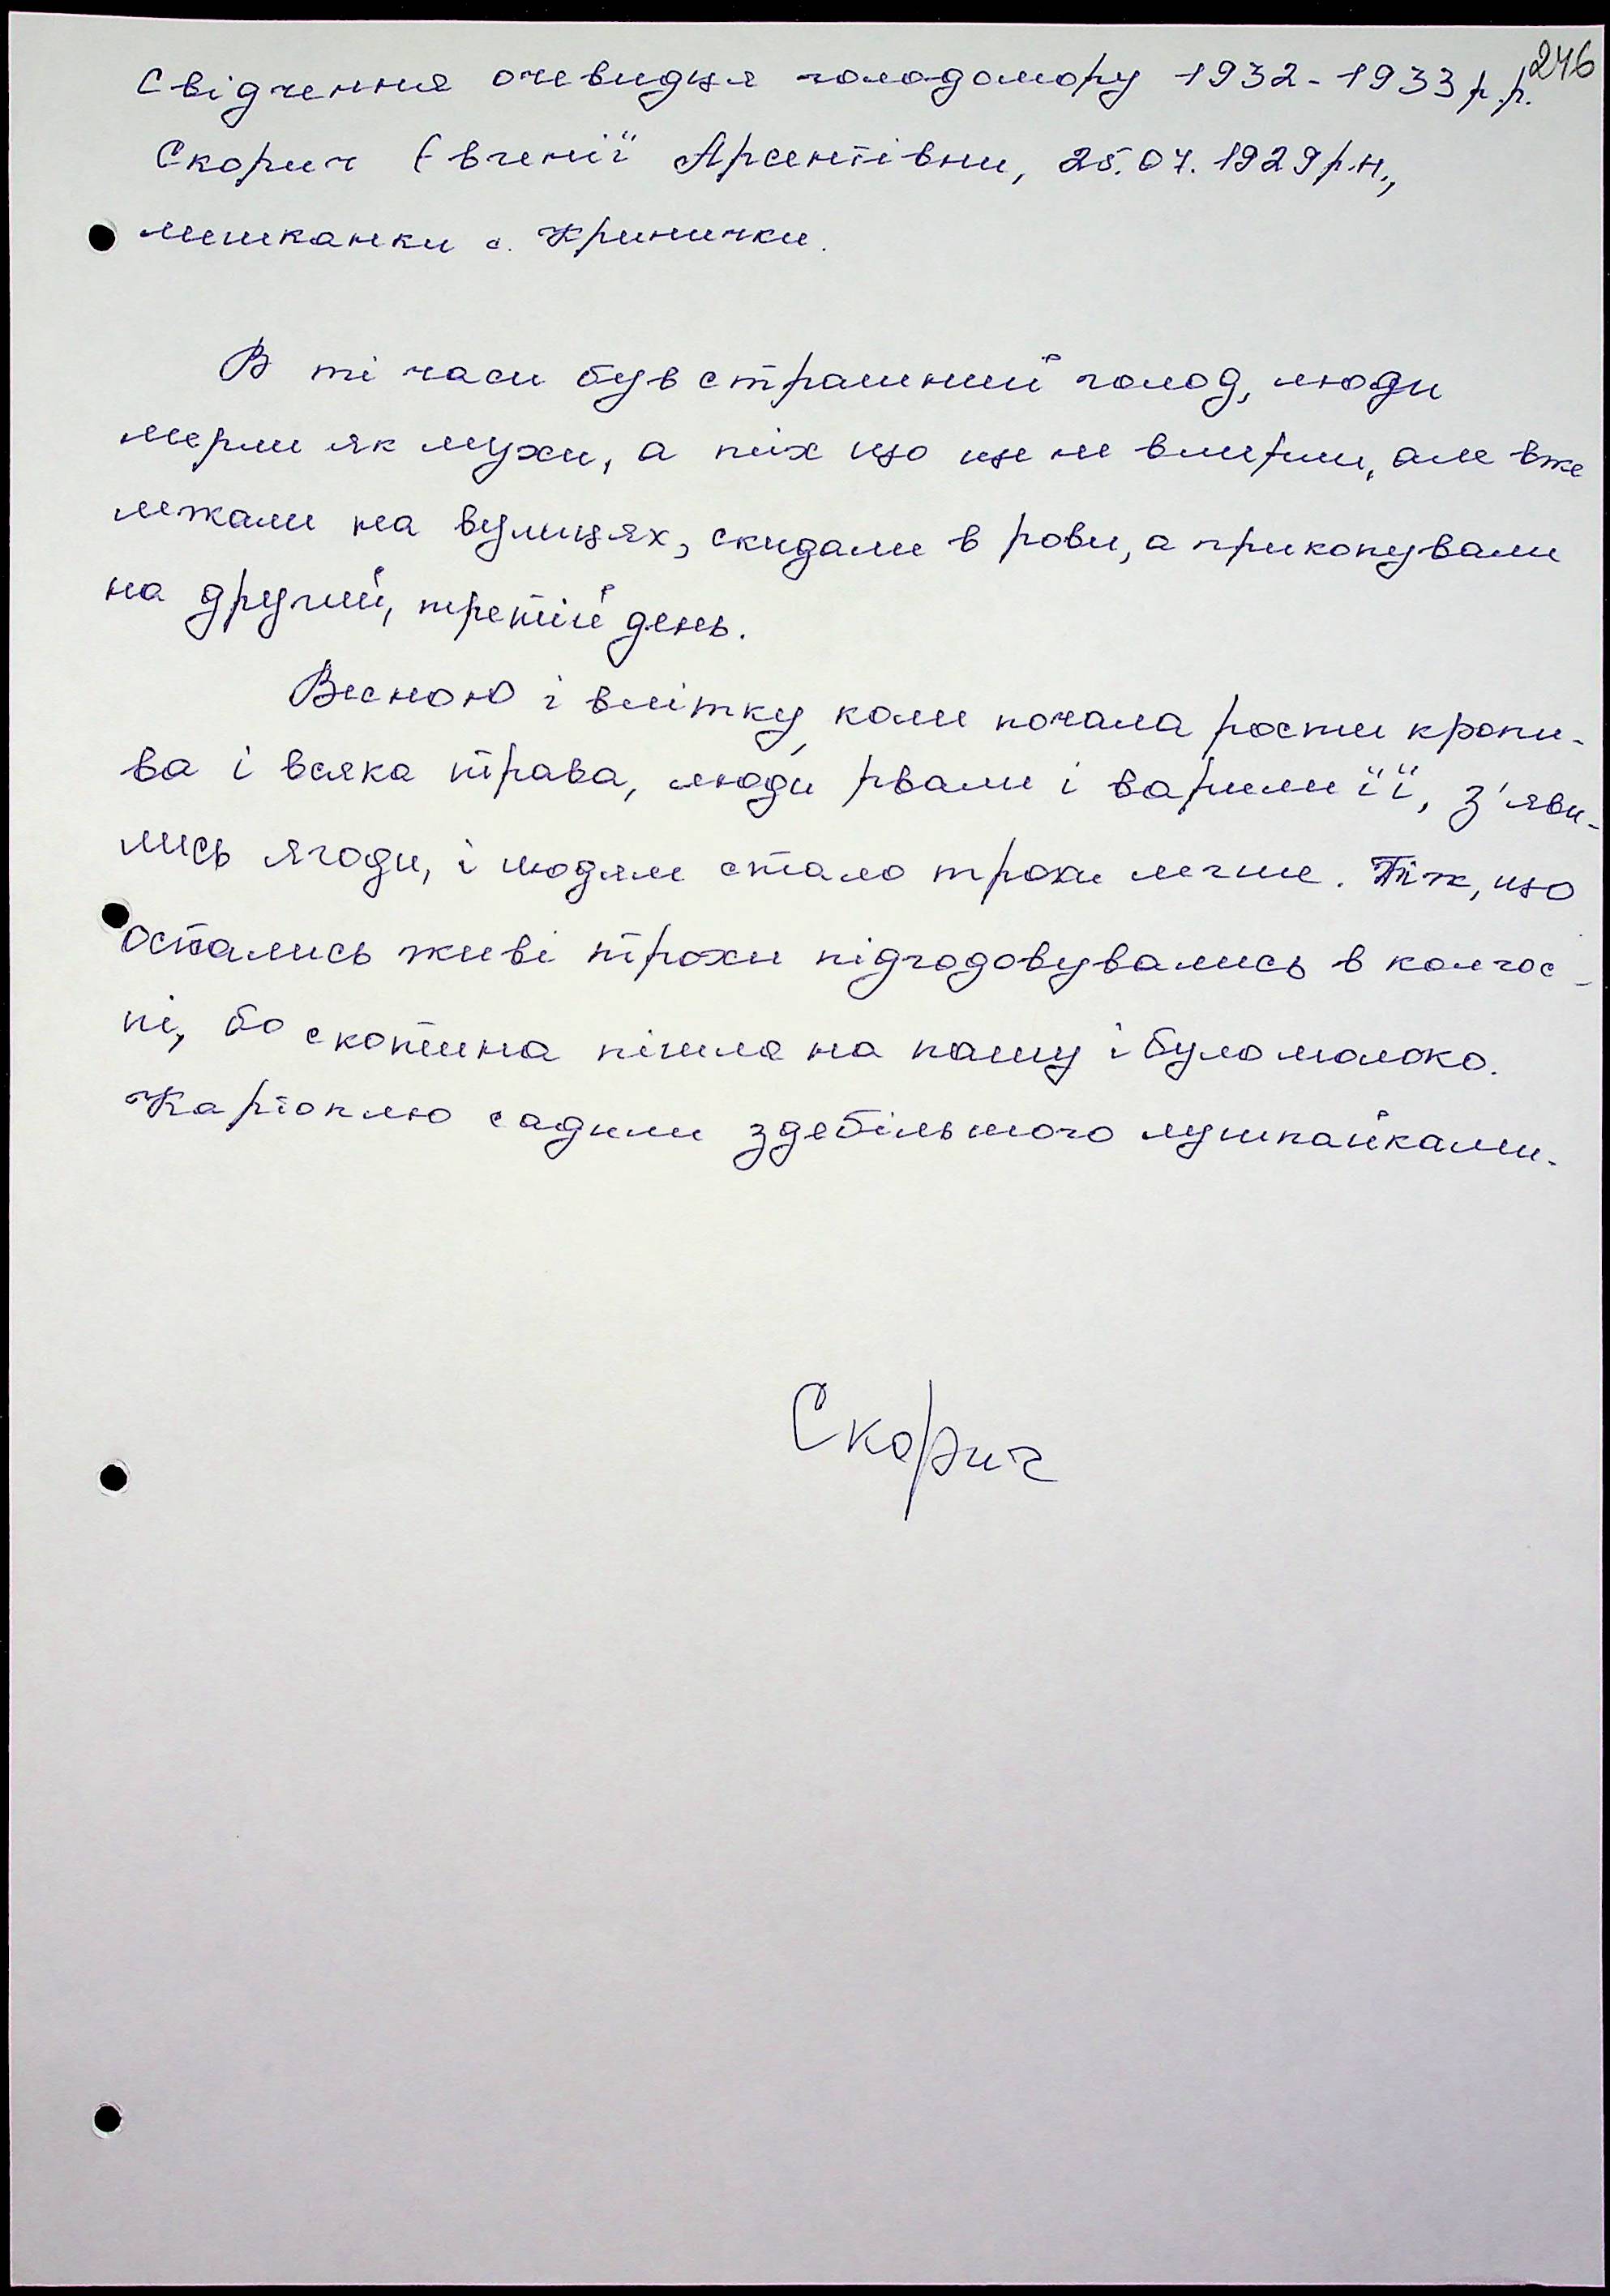 246
Свідчення очевидця голодомору 1932-1933 р.р.
Скорич Євгенії Арсентівни, 25.07.1929 р.н.,
мешканки с. Кринички.
В ті часи був страшний голод, люди
мерли як мухи, а тих що ще не вмерли, але вже
лежали на вулицях, скидали в рови, а прикопували
на другий, третій день.
Весною і влітку, коли почала рости кропи-
ва і всяка трава, люди рвали і варили її, з'яви-
лись ягоди, і людям стало трохи легше. Ті ж, що
остались живі трохи підгодовувались в колгос-
пі, бо скотина пішла на пашу і було молоко.
Картоплю садили здебільшого лушпайками.
Скорич